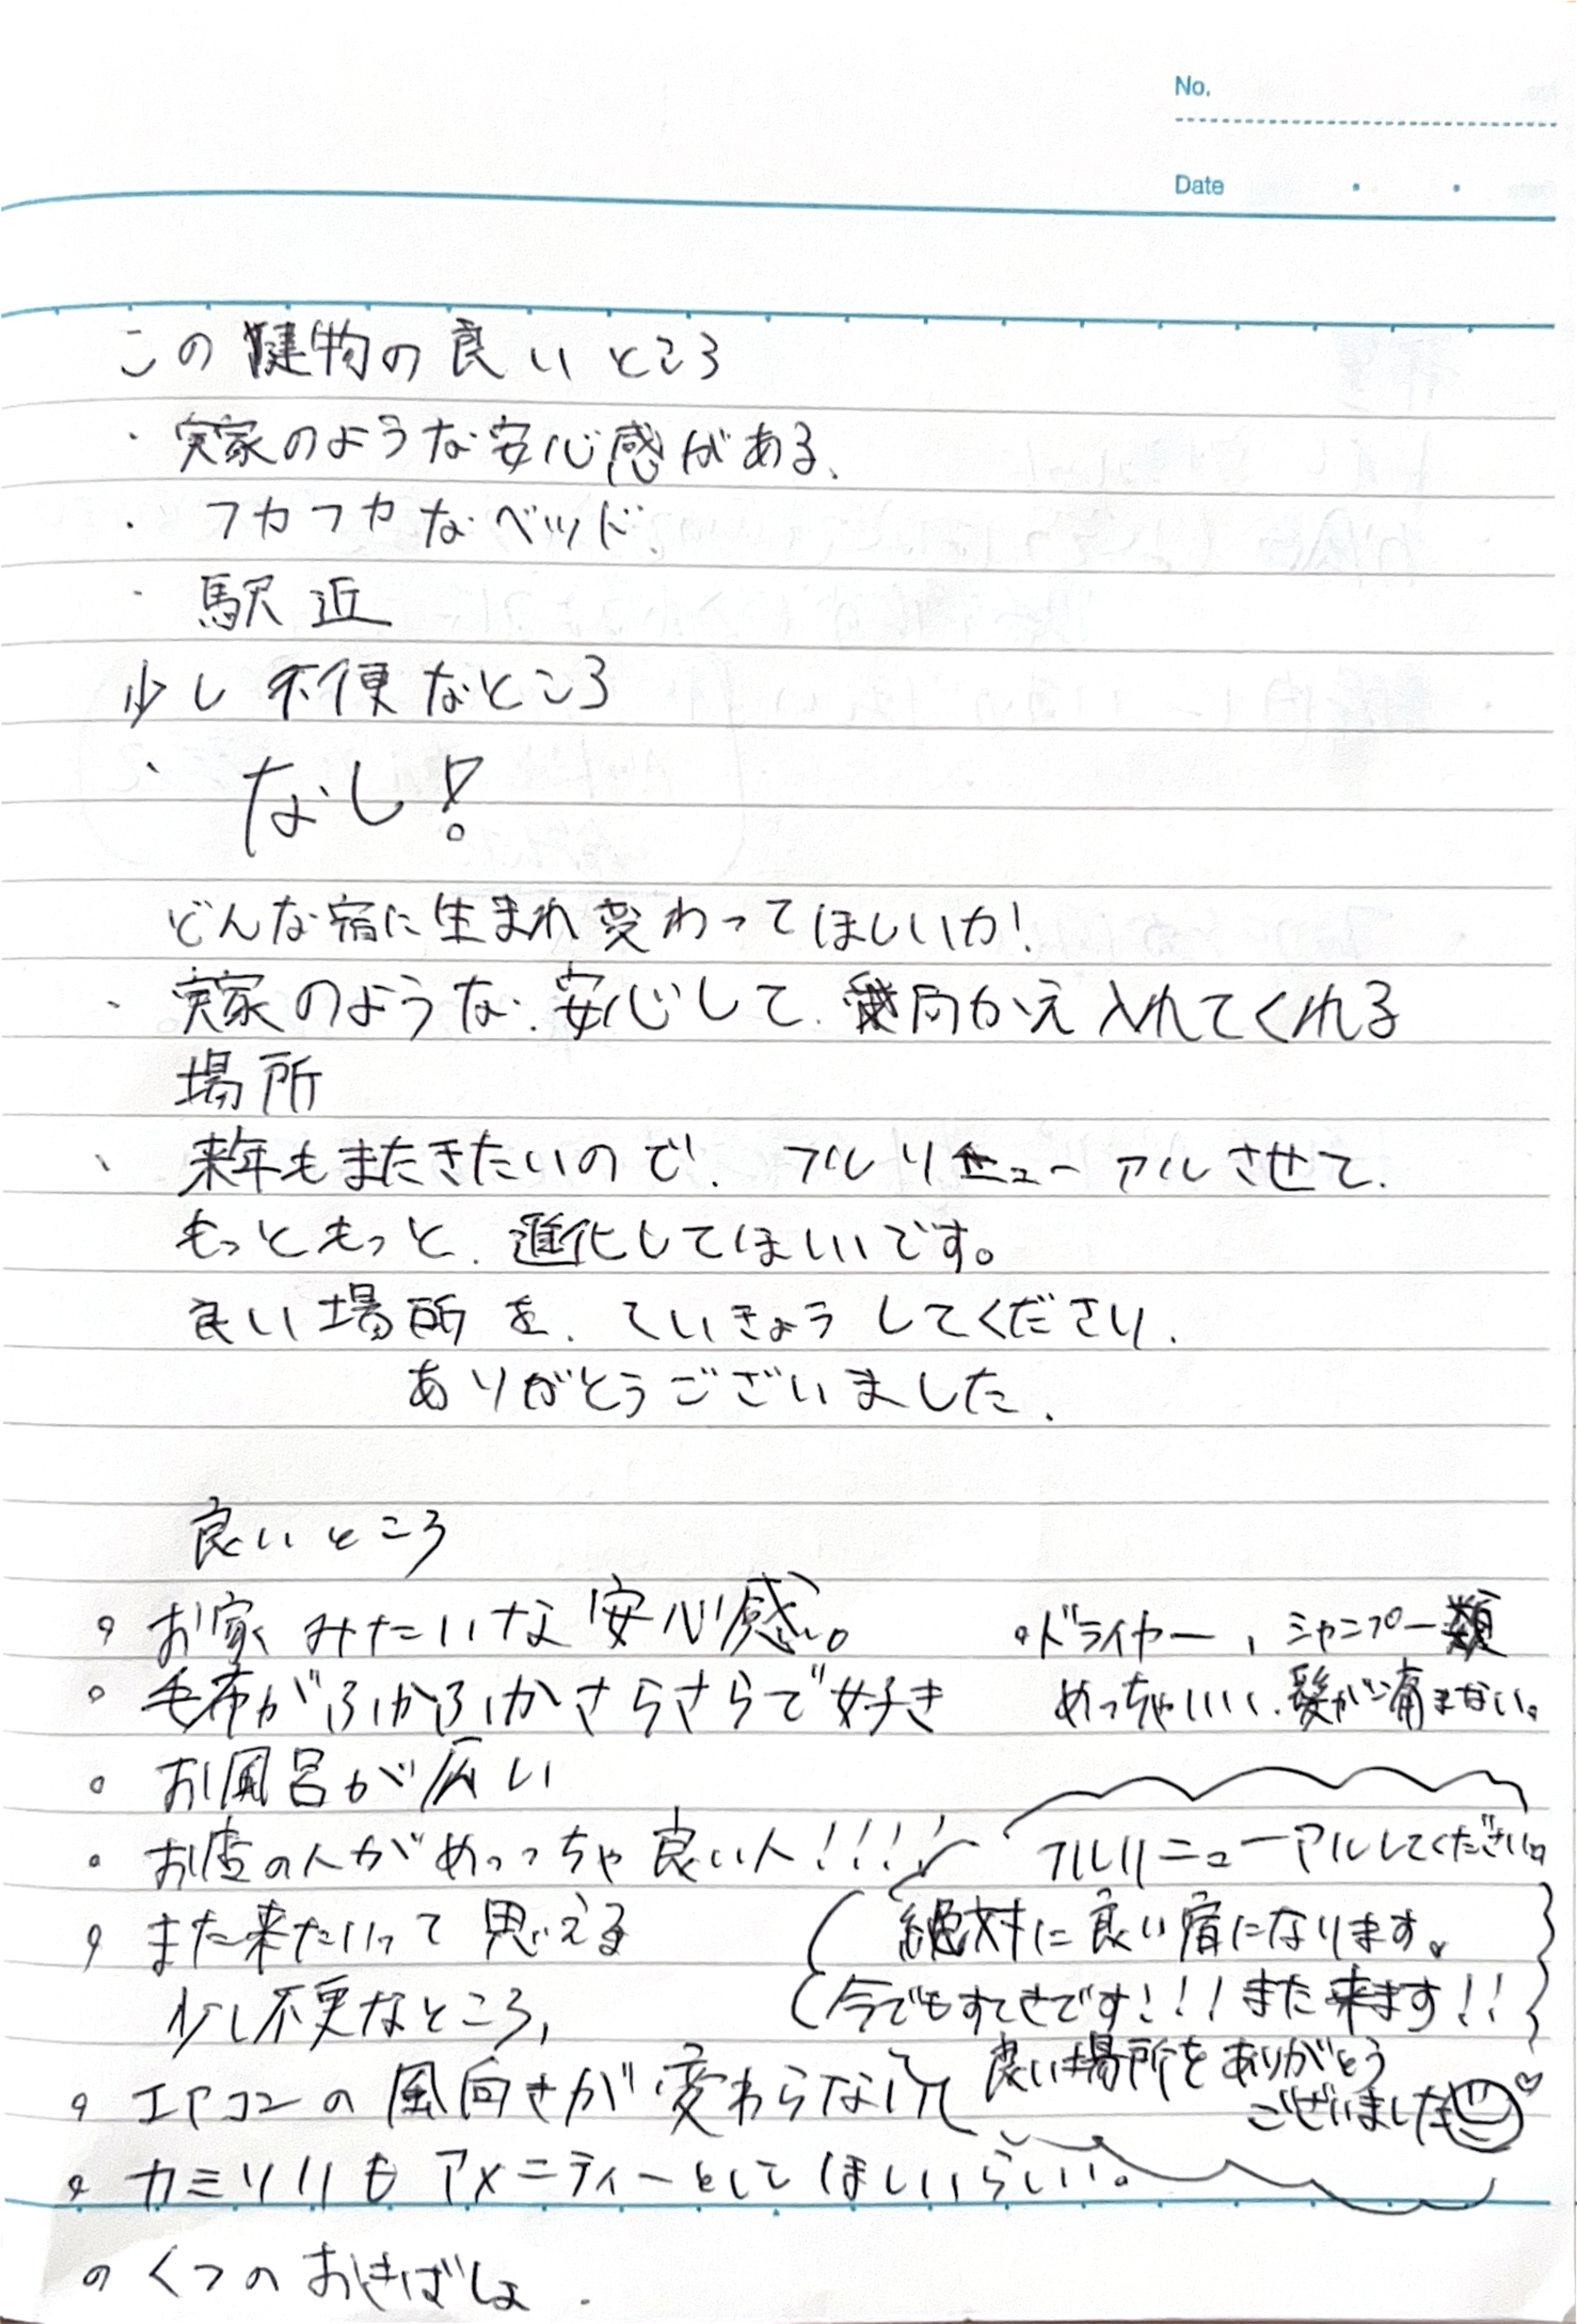 No.
Date
この建物の良いところ
・実家のような安心感がある、
・フカフカなベッド、
・駅近
少し不便なところ
・なし!
どんな宿に生まれ変わってほしいか!
・実家のような、安心して、向かえ入れてくれる
場所
、来年もまたきたいので、フルリニューアルさせて、
もっともっと、進化してほしいです。
良い場所を、ていきょうしてくださり、
ありがとうございました、
良いところ
。お家みたいな安心感。
。毛布がふかふかさらさらで好き
。お風呂が広い
。お店の人がめっっちゃ良い人!!!!
。また来たいって思える
。ドライヤー、シャンプー類
めっちゃいい、髪が痛まない。
フルリニューアルしてください。
絶対に良い宿になります。
(今でもすてきです!!!また来ます!!
良い場所をありがとう
ございました♡
少し不更なところ、
。エアコンの風向きが変わらない
。カミソリもアメニティーとしてほしいらしい。
。くつのおきばしょ.